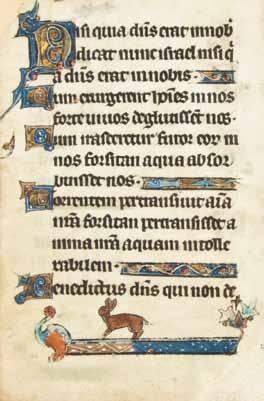 Nisi quia dn̄s erat in nob
dicat nunc israel nisi q̄
a dn̄s erat in nobis
Cum exurgerent hoīes in nos
forte uiuos deglutissēt nos
Cum irasceretur furor eor̄ in
nos forsitan aqua absor
buisset nos
Torrentem pertransiuit aīa
nr̄a forsitan pertransisset a
nima nr̄a aquam intolle
rabilem
Benedictus dn̄s qui non de